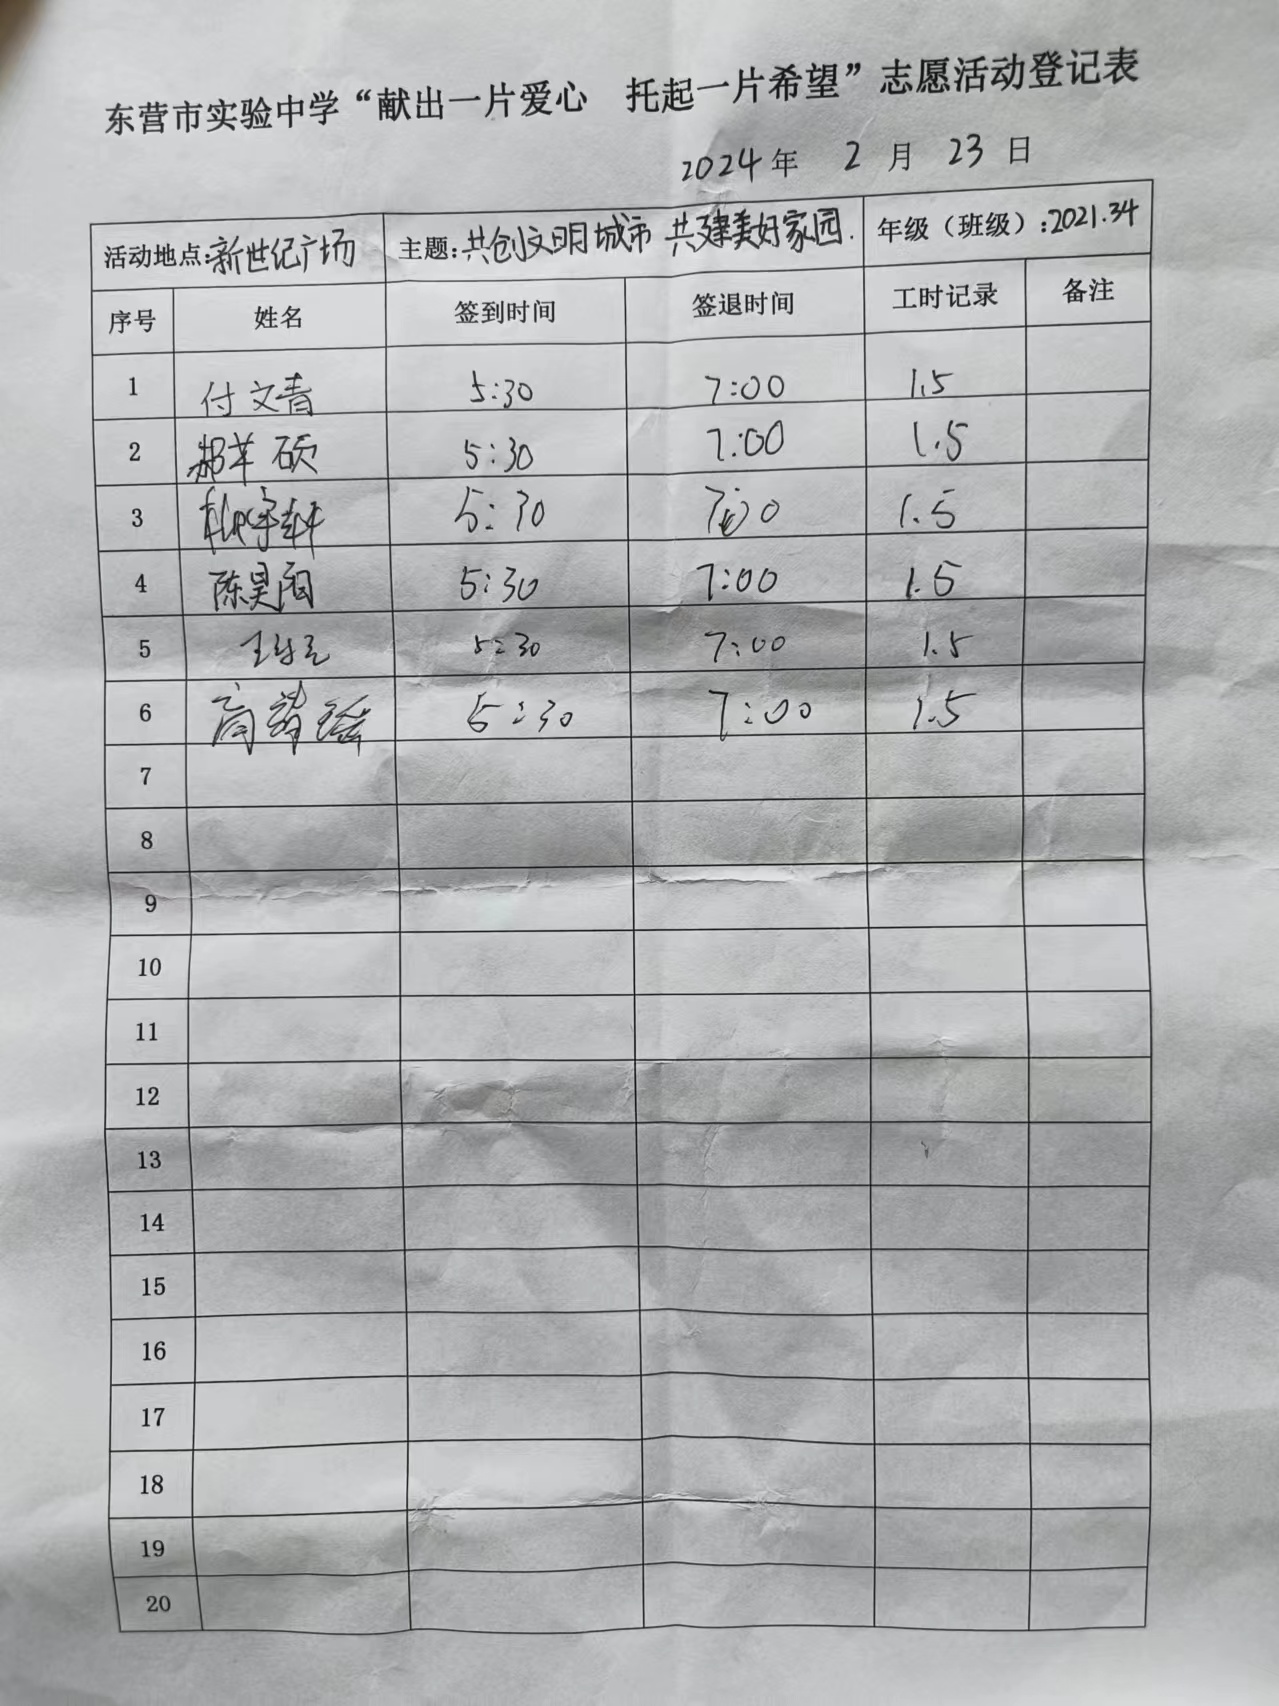 东营市实验中学“献出一片爱心 托起一片希望”志愿活动登记表
2024年 2月 23日
活动地点:新世纪广场 主题:共创文明城市 共建美好家园. 年级（班级）:2021.34
序号 姓名 签到时间 签退时间 工时记录 备注
1 付文青 5:30 7:00 1.5
2 硕 5:30 7:00 1.5
3 5:30 7:00 1.5
4 陈昊阳 5:30 7:00 1.5
5 王 5:30 7:00 1.5
6 高 瑶 5:30 7:00 1.5
7
8
9
10
11
12
13
14
15
16
17
18
19
20